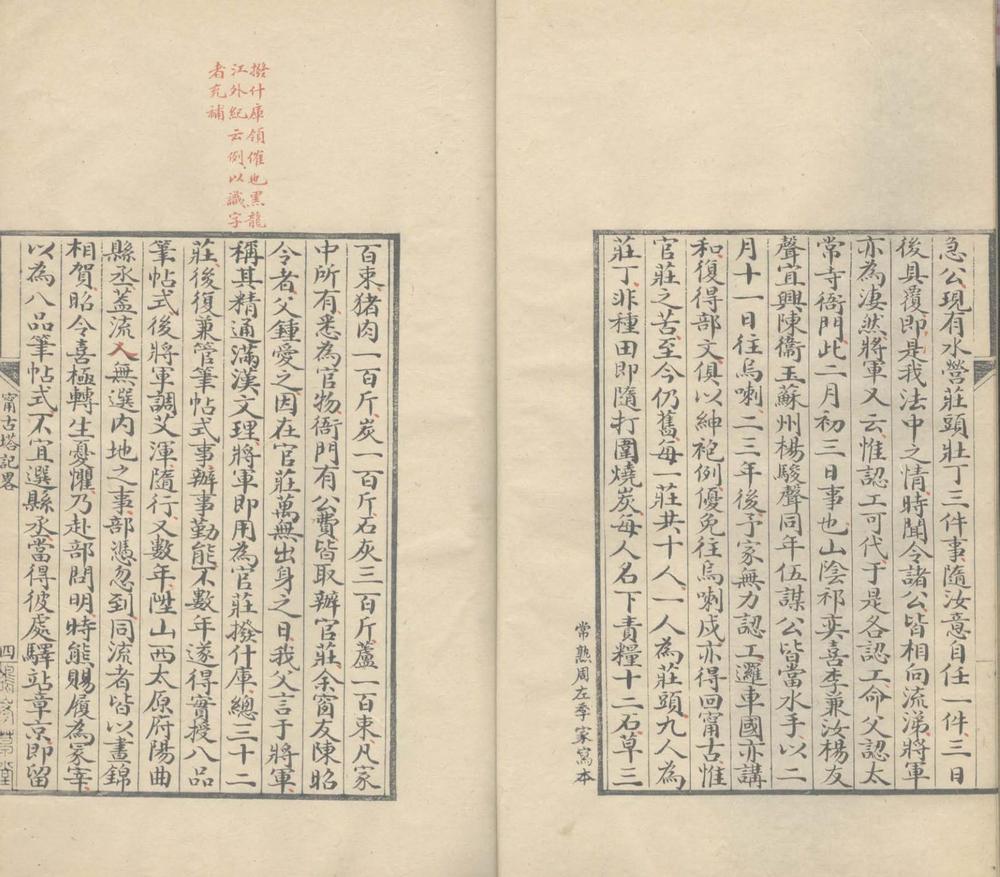 急公現有水營莊頭壯丁三件事隨汝意自任一件三日
後具覆即是我法中之情時聞令諸公皆相向流涕將軍
亦為淒然將軍又云惟認工可代于是各認工命父認太
常寺衙門此二月初三日事也山陰祁奕喜李兼汝楊友
聲宜興陳衞玉蘇州楊駿聲同年伍謀公皆當水手以二
月十一日往烏喇二三年後予家無力認工邏車國亦講
和復得部文俱以紳袍例優免往烏喇戍亦得回甯古惟
官莊之苦至今仍舊每一莊共十人一人為莊頭九人為
莊丁非種田即隨打圍燒炭每人名下責糧十二石草三
常熟周左季家寫本
撥什庫領催也黑龍
江外紀云例以識字
者充補
百束豬肉一百斤炭一百斤石灰三百斤蘆一百束凡家
中所有悉為官物衙門有公費皆取辦官莊余窗友陳昭
令者父鍾愛之因在官莊萬無出身之日我父言于將軍
稱其精通滿漢文理將軍即用為官莊撥什庫總三十二
莊後復兼管筆帖式事辦事勤能不數年遂得實授八品
筆帖式後將軍調艾渾隨行又數年陞山西太原府陽曲
縣丞蓋流人無選內地之事部憑忽到同流者皆以畫錦
相賀昭令喜極轉生憂懼乃赴部問明時熊賜履為冡宰
以為八品筆帖式不宜選縣丞當得彼處驛站章京即留
甯古塔記畧
四